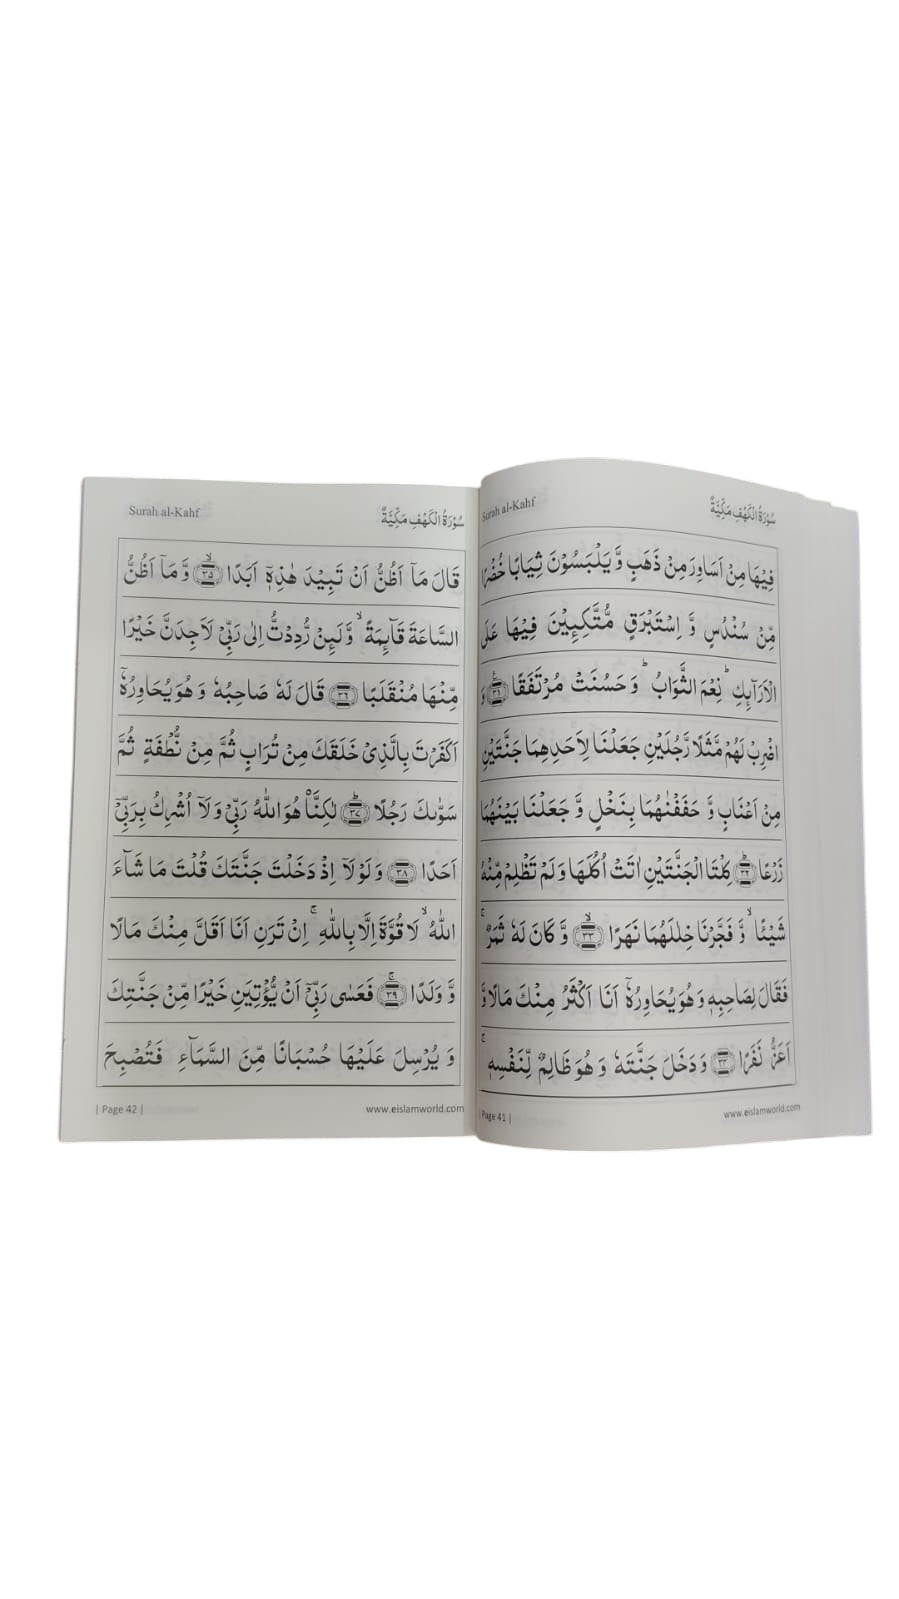 Surah al-Kahf سُوْرَةُ الْكَهْفِ مَكِّيَّةٌ
فِيْهَا مِنْ اَسَاوِرَ مِنْ ذَهَبٍ وَّ يَلْبَسُوْنَ ثِيَابًا خُضْرًا
مِّنْ سُنْدُسٍ وَّ اِسْتَبْرَقٍ مُّتَّكِـِٕيْنَ فِيْهَا عَلَى
الْاَرَآىِٕكِ ؕ نِعْمَ الثَّوَابُ ؕ وَ حَسُنَتْ مُرْتَفَقًا ۝۳۱ وَ
اضْرِبْ لَهُمْ مَّثَلًا رَّجُلَيْنِ جَعَلْنَا لِاَحَدِهِمَا جَنَّتَيْنِ
مِنْ اَعْنَابٍ وَّ حَفَفْنٰهُمَا بِنَخْلٍ وَّ جَعَلْنَا بَيْنَهُمَا
زَرْعًا ۝۳۲ كِلْتَا الْجَنَّتَيْنِ اٰتَتْ اُكُلَهَا وَلَمْ تَظْلِمْ مِّنْهُ
شَيْـًٔا ۙ وَّ فَجَّرْنَا خِلٰلَهُمَا نَهَرًا ۝۳۳ وَّ كَانَ لَهٗ ثَمَرٌ ۚ
فَقَالَ لِصَاحِبِهٖ وَ هُوَ يُحَاوِرُهٗۤ اَنَا اَكْثَرُ مِنْكَ مَالًا وَّ
اَعَزُّ نَفَرًا ۝۳۴ وَ دَخَلَ جَنَّتَهٗ وَ هُوَ ظَالِمٌ لِّنَفْسِهٖ ۚ
| Page 41 | www.eislamworld.com
Surah al-Kahf سُوْرَةُ الْكَهْفِ مَكِّيَّةٌ
قَالَ مَاۤ اَظُنُّ اَنْ تَبِيْدَ هٰذِهٖۤ اَبَدًا ۙ۝۳۵ وَّ مَاۤ اَظُنُّ
السَّاعَةَ قَآىِٕمَةً ۙ وَّ لَىِٕنْ رُّدِدْتُّ اِلٰى رَبِّيْ لَاَجِدَنَّ خَيْرًا
مِّنْهَا مُنْقَلَبًا ۝۳۶ قَالَ لَهٗ صَاحِبُهٗ وَ هُوَ يُحَاوِرُهٗۤ
اَكَفَرْتَ بِالَّذِيْ خَلَقَكَ مِنْ تُرَابٍ ثُمَّ مِنْ نُّطْفَةٍ ثُمَّ
سَوّٰىكَ رَجُلًا ؕ۝۳۷ لٰكِنَّا۠ هُوَ اللّٰهُ رَبِّيْ وَ لَاۤ اُشْرِكُ بِرَبِّيْۤ
اَحَدًا ۝۳۸ وَ لَوْلَاۤ اِذْ دَخَلْتَ جَنَّتَكَ قُلْتَ مَا شَآءَ
اللّٰهُ ۙ لَا قُوَّةَ اِلَّا بِاللّٰهِ ۚ اِنْ تَرَنِ اَنَا اَقَلَّ مِنْكَ مَالًا
وَّ وَلَدًا ۚ۝۳۹ فَعَسٰى رَبِّيْۤ اَنْ يُّؤْتِيَنِ خَيْرًا مِّنْ جَنَّتِكَ
وَ يُرْسِلَ عَلَيْهَا حُسْبَانًا مِّنَ السَّمَآءِ فَتُصْبِحَ
| Page 42 | www.eislamworld.com